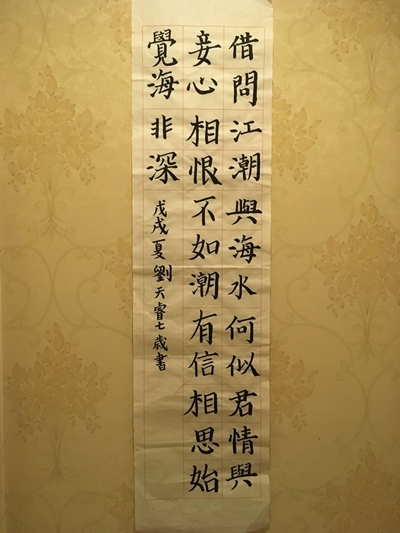 借問江潮與海水何似君情與
妾心相恨不如潮有信相思始
覺海非深
戊戌夏劉天睿七歲書